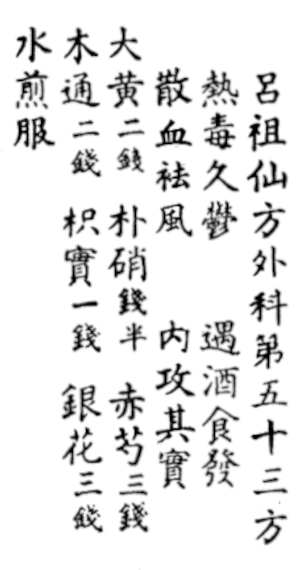 呂祖仙方外科第五十三方
熱毒久鬱 遇酒食發
散血祛風 内攻其實
大黄二錢 朴硝錢半 赤芍三錢
木通二錢 枳實一錢 銀花三錢
水煎服